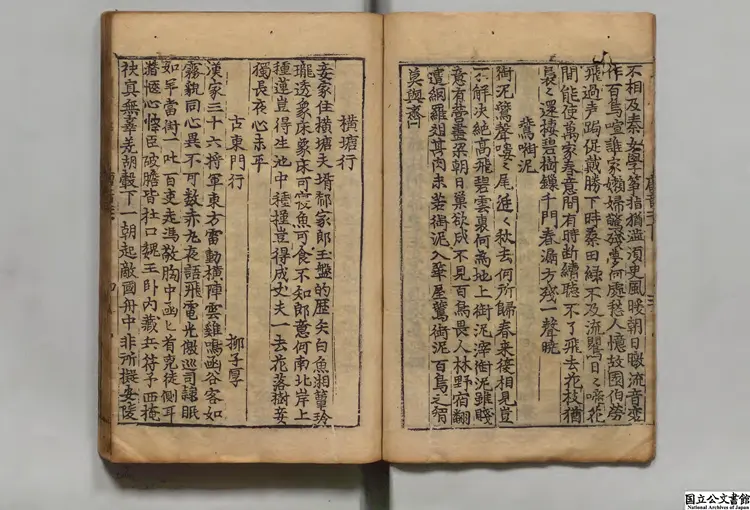 不相及秦女學箏指猶澁須臾風暖朝日暾流音變
作百鳥喧誰家嬾婦驚殘夢何處愁人憶故園伯勞
飛過声跼促戴勝下時桑田綠不及流鸎日〻啼花
間能使萬家春意閒有時斷續聽不了飛去花枝猶
裊〻還棲碧樹鏁千門春漏方殘一聲曉
鷰啣泥
銜泥鷰聲嘍〻尾涎〻秋去何所歸春來復相見豈
不解決絶高飛碧雲裏何爲地上銜泥滓銜泥雖賤
意有營盡梁朝日巢欲成不見百鳥畏人林野宿翻
遭網羅俎其肉未若銜泥入華屋鷰銜泥百鳥之智
莫與齊
橫塘行
妾家住橫塘夫壻郗家郎玉盤的歴矢白魚湘簟玲
瓏透象床象床可寢魚可食不知郎意何南北岸上
種蓮豈得生池中種槿豈得成丈夫一去花落樹妾
獨長夜心未平
古東門行 柳子厚
漢家三十六將軍東方雷動橫陣雲雞鳴函谷客如
霧貌同心異不可數赤丸夜語飛電光徼巡司隷眠
如羊當街一叱百吏走馮敬胸中函匕首兇徒側耳
潜愜心悍臣破膽皆杜口魏王臥內藏兵符子西掩
袂真無辜羌胡轂下一朝起敵國舟中非所擬安陵
国立公文書館
National Archives of Japan